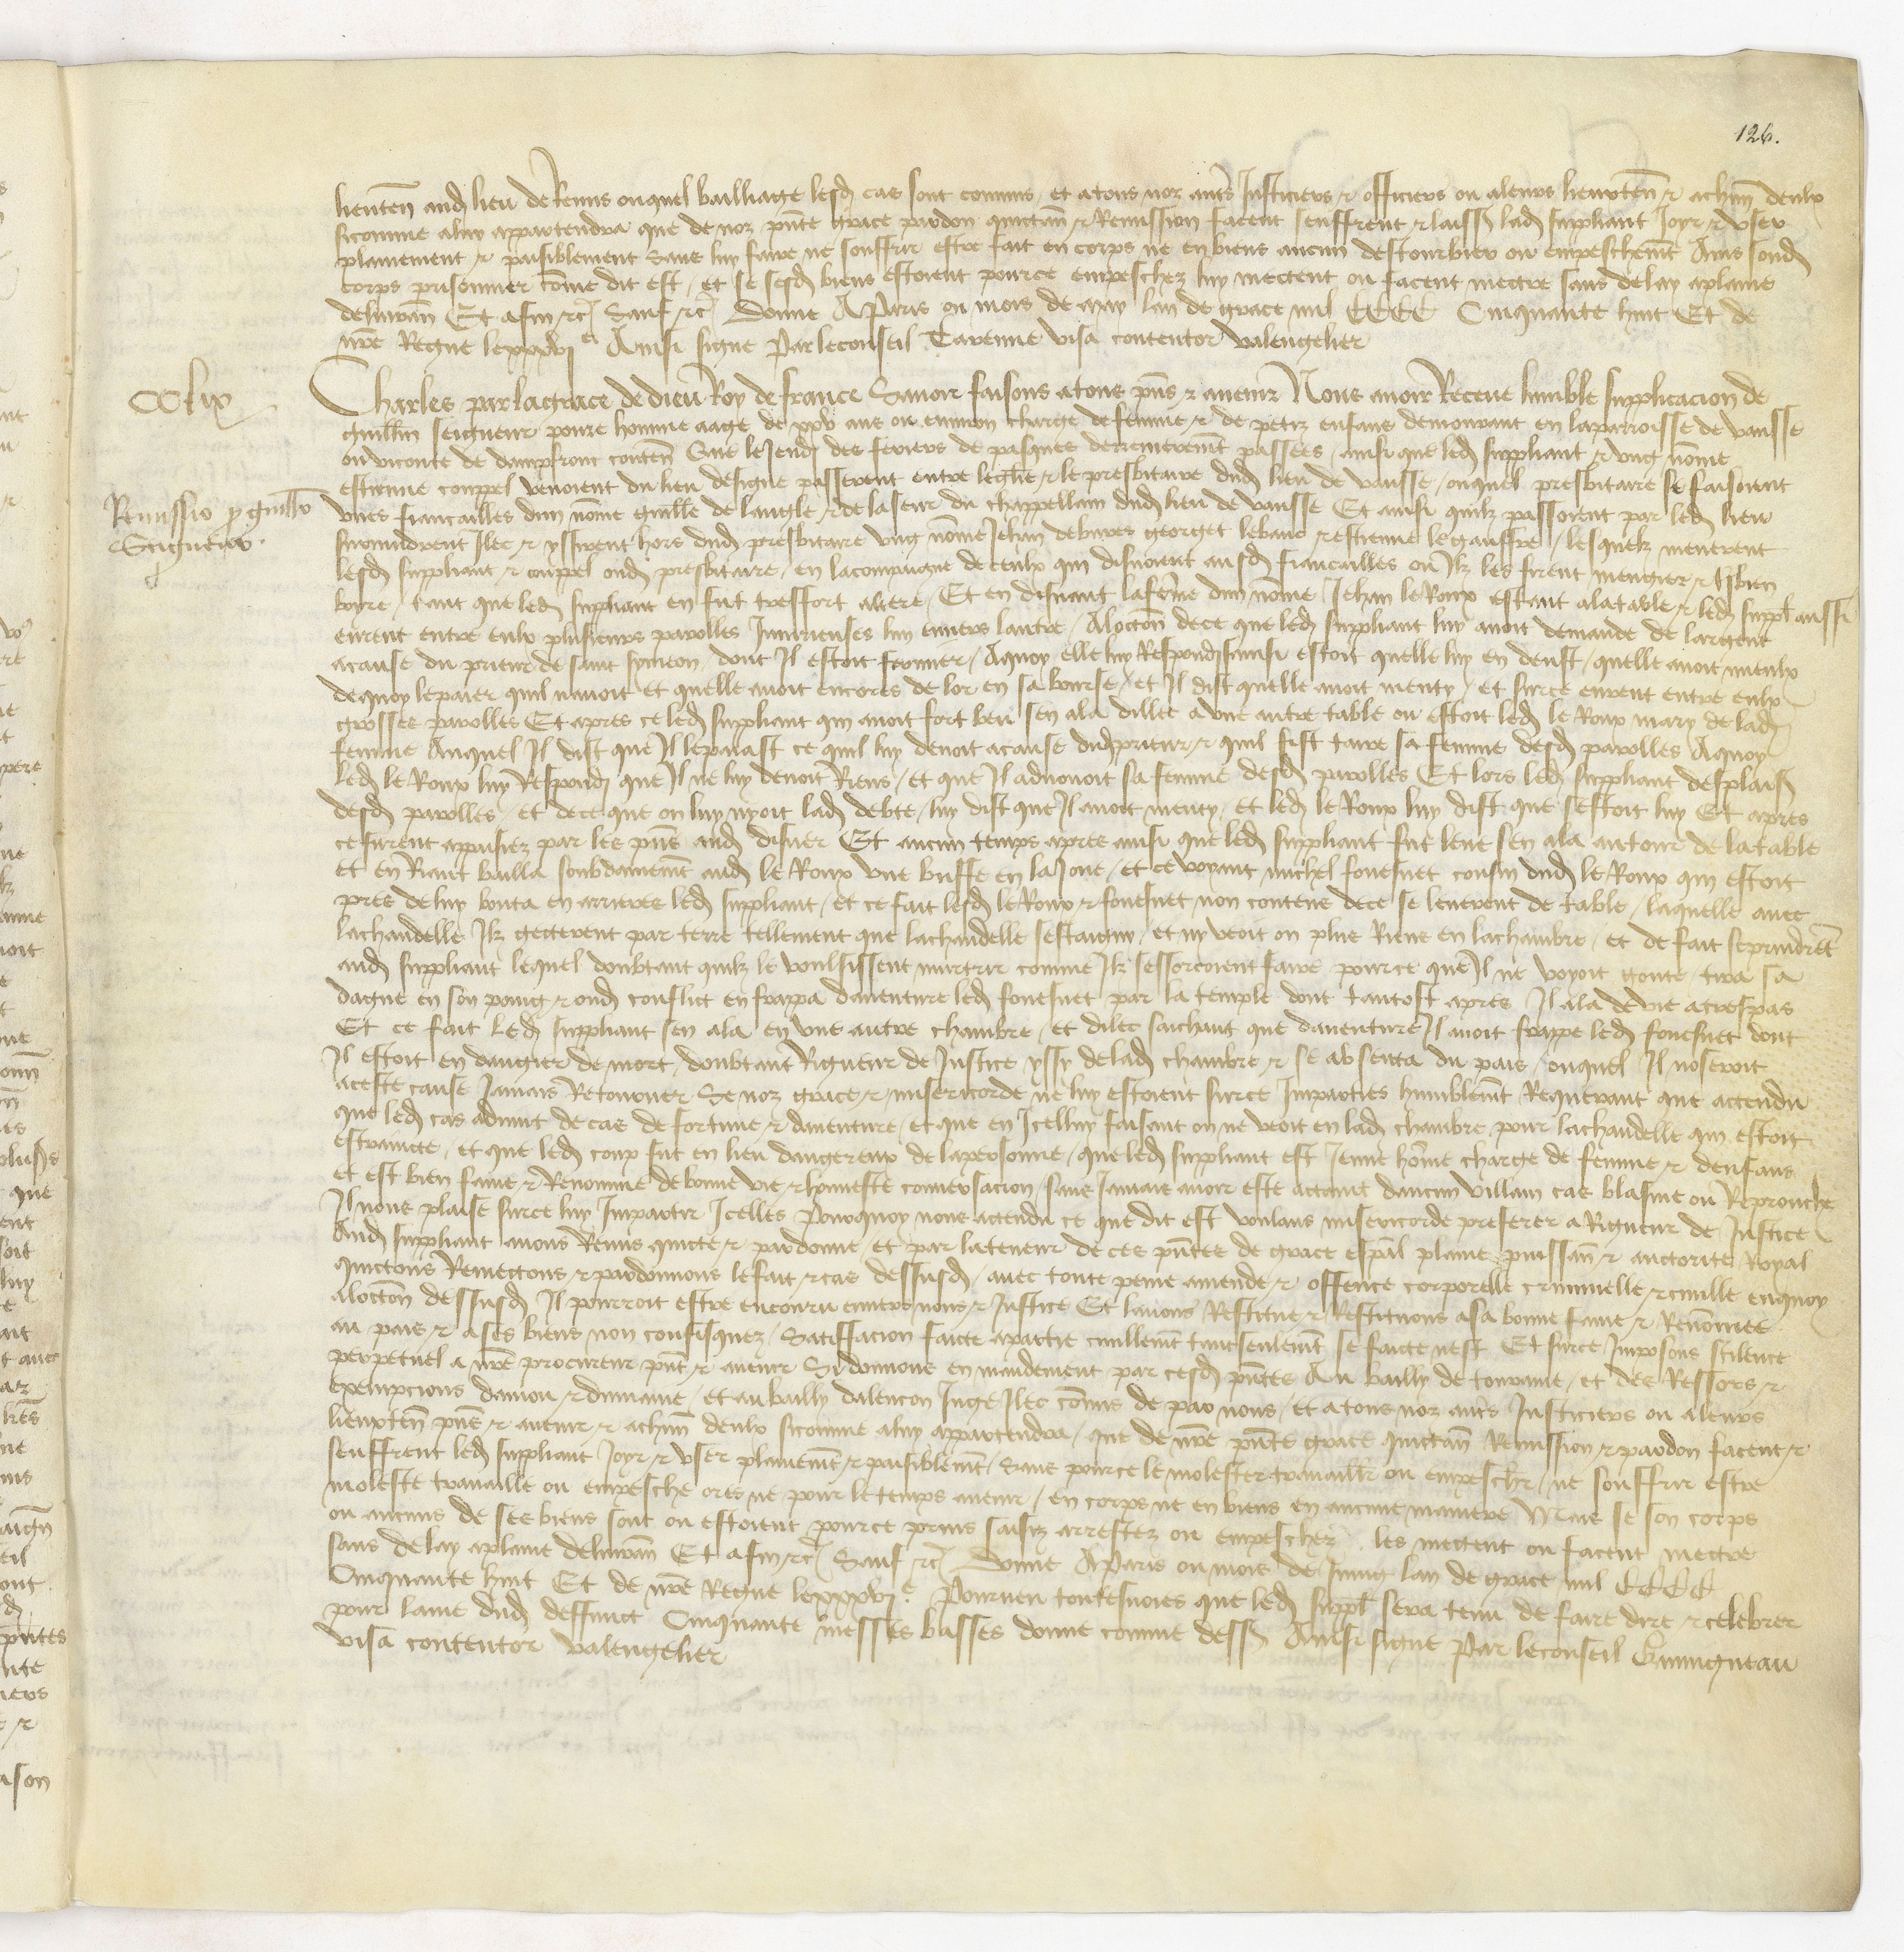 126.
lieuten aud lieu de Reims ouquel bailliage lesd cas sont commis et a tous noz autres Justiciers & officiers ou a leurs lieuxten & a chun deulx
sicomme a luy appartendra que de noz pnte grace pardon quictan & Remission facent seuffrent & laiss lad suppliant Joyr & user
plainement & paisiblement Sans luy faire ne souffrir estre fait en corps ne en biens aucun destourbier ou empeschemt Ains sond
corps prisonnier come dit est et se sesd biens estoient pource empeschez luy mectent ou facent mectre sans delay a plaine
delivran Et afin &c Sauf &c Donne A Paris ou mois de may lan de grace mil CCCC Cinquante huit Et de
nre Regne le xxxvj e Ainsi signe Par le conseil Tavenne visa contentor valengelier
CClix
Charles par la grace de dieu Roy de france Savoir faisons a tous pns & avenir Nous avoir Receue humble supplicacion de
guillm seigneur povre homme aage de xxv ans ou environ charge de femme & de petiz enfans demourant en la parroisse de vansse
ou viconte de dampfront conten Que le Jeudj des feriers de pasques derrenieremt passees ainsi que led suppliant & ung nome
estienne couppel venoient du lieu designe passerent entre leglise & le presbitaire dud lieu de vansse ouquel presbitaire se faisoient
Remissio p guillo
Seigneur
unes fiancailles dun nome guille de langle & de la seur du chappellain dud lieu de vansse Et ainsi quilz passoient par led lieu
survindrent Ilec & yssirent hors dud presbitaire ung nome Jehan de bures georget lebanc & estienne le gauffre lesquelz menerent
lesd suppliant & couppel oud presbitaire en la compaignie de ceulx qui disnoient ausd fiancailles ou Ilz les firent mengier & tsbien
boyre tant que led suppliant en fut tresfort altere Et en disnant la feme dun nome Jehan le Roux estant a la table & led suppl aussi
eurent entre eulx plusieurs parolles Injurieuses luy envers lautre A loccon de ce que led suppliant luy avoit demande de largent
a cause du prieur de saint symeon dont Il estoit fermier A quoy elle luy Respondj sainsi estoit quelle luy en deust quelle avoit mieulx
de quoy le paier quil navoit et quelle avoit encores de lor en sa bourse et Il dist quelle avoit menty et surce eurent entre eulx
grosses parolles Et apres ce led suppliant qui avoit fort beu sen ala dillec a une autre table ou estoit led le Roux mary de lad
femme Auquel Il dist que Il le paiast ce quil luy devoit a cause dud prieur & quil fist taire sa femme desd parolles A quoy
led le Roux luy Respondj que Il ne luy devoit Riens et que Il advouoit sa femme desd parolles Et lors led suppliant desplais
desd parolles et de ce que on luy nyoit lad debte luy dist que Il avoit menty et led le Roux luy dist que sestoit luy Et apres
ce furent appaisiez par les pns aud disner Et aucun temps apres ainsi que led suppliant fut leve sen ala autour de la table
et en Riant bailla soubdainemt aud le Roux une buffe en la Joue et ce voyant michel fouesnet cousin dud le Roux qui estoit
pres de luy bouta en arrieres led suppliant et ce fait lesd le Roux & fouesnet non contens de ce se leverent de table laquelle avec
la chandelle Ilz gecterent par terre tellement que la chandelle sestaigny et ny veoit on plus Riens en la chambre et de fait seprindret
aud suppliant lequel doubtant quilz le voulsissent murtrir comme Ilz sefforcoient faire pource que Il ne voyoit goute tira sa
dague en son poing & oud conflict en frappa daventure led fouesnet par la temple dont tantost apres Il ala de vie a trespas
Et ce fait led suppliant sen ala en une autre chambre et dilec saichant que daventure Il avoit frappe led fouesnet dont
Il estoit en dangier de mort doubtant Rigueur de Justice yssy de lad chambre & se absenta du pais ouquel Il noseroit
a ceste cause Jamais Retourner Se noz grace & misericorde ne luy estoient surce Imparties humblemt Requerant que actendu
que led cas advint de cas de fortune & daventure et que en Icelluy faisant on ne veoit en lad chambre pour la chandelle qui estoit
estaincte et que led coup fut en lieu dangereux de la personne que led suppliant est Jeune home charge de femme & denfans
et est bien fame & Renomme de bonne vie & honneste conversacion sans Jamais avoir este actaint daucun villain cas blasme ou Reprouche
Il nous plaise surce luy Impartir Icelles Pourquoy nous actendu ce que dit est voulans misericorde preferer a Rigueur de Justice
Aud suppliant avons Remis quicte & pardonne et par la teneur de ces pntes de grace espal plaine puissan & auctorite Royal
quictons Remectons & pardonnons le fait & cas dessusd avec toute peine amende & offence corporelle criminelle & civille enquoy
a loccon dessusd Il pourroit estre encouru envers nous & Justice Et lavons Restitue & Restituons a sa bonne fame & Renommee
au pais & a ses biens non confisquez Satisfacion faicte a partie civillemt tant seulemt se faicte nest Et surce Imposons Scilence
perpetuel a nre procureur pnt & avenir Sy donnons en mandement par cesd pntes Au bailly de touraine et des Ressors &
exempcions danjou & du maine et au bailly dalencon Juge Ilec comis de par nous et a tous noz auts Justiciers ou a leurs
lieuxten pns & avenir & a chun deulx sicomme a luy appartendra que de nre pnte grace quictan Remission & pardon facent &
seuffrent led suppliant Joyr & user plainemt & paisiblemt Sans pource le molester travaillr ou empescher ne souffrir estre
moleste travaille ou empesche ores ne pour le temps avenir en corps ne en biens en aucune maniere Mais se son corps
ou aucuns de ses biens sont ou estoient pource prins saisiz arrestez ou empeschez les mectent ou facent mectre
sans delay a plaine delivran Et afin &c Sauf &c Donne A Paris ou mois de Juing lan de grace mil CCCC
Cinquante huit Et de nre Regne le xxxvj e Pourveu toutesvoies que led suppl sera tenu de faire dire & celebrer
pour lame dud deffunct Cinquante messes basses donne comme dess Ainsi signe Par le conseil Guingneau
visa contentor valengelier